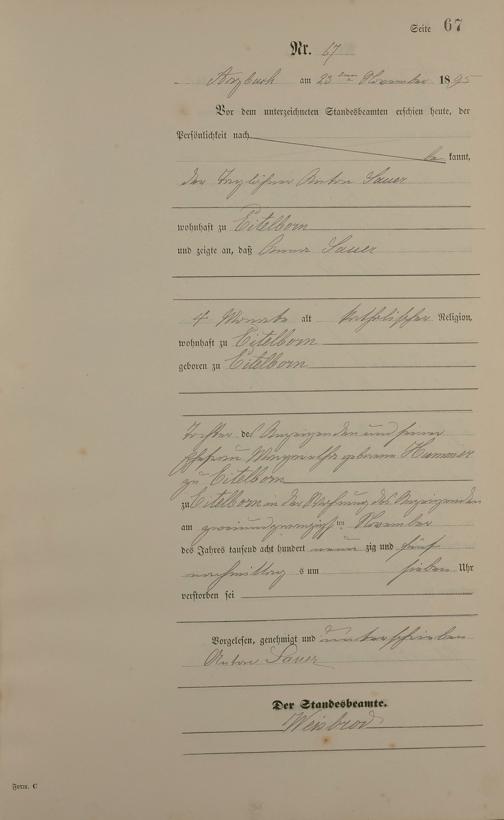 Seite 67
Nr. 67
Arzbach am 23 ten November 1895
Vor dem unterzeichneten Standesbeamten erschien heute, der
Persönlichkeit nach
be kannt,
der Taglöhner Anton Sauer
wohnhaft zu Eitelborn
und zeigte an, daß Anna Sauer
4 Monate alt katholischer Religion,
wohnhaft zu Eitelborn
geboren zu Eitelborn
Tochter des Anzeigenden und seiner
Ehefrau geborene Hummer
zu Eitelborn
zu Eitelborn in der Wohnung des Anzeigenden
am zweiundzwanzigsten November
des Jahres tausend acht hundert neun zig und fünf
nachmittag s um sieben Uhr
verstorben sei
Vorgelesen, genehmigt und unterschrieben
Anton Sauer
Der Standesbeamte.
Weisbrod
Form. C